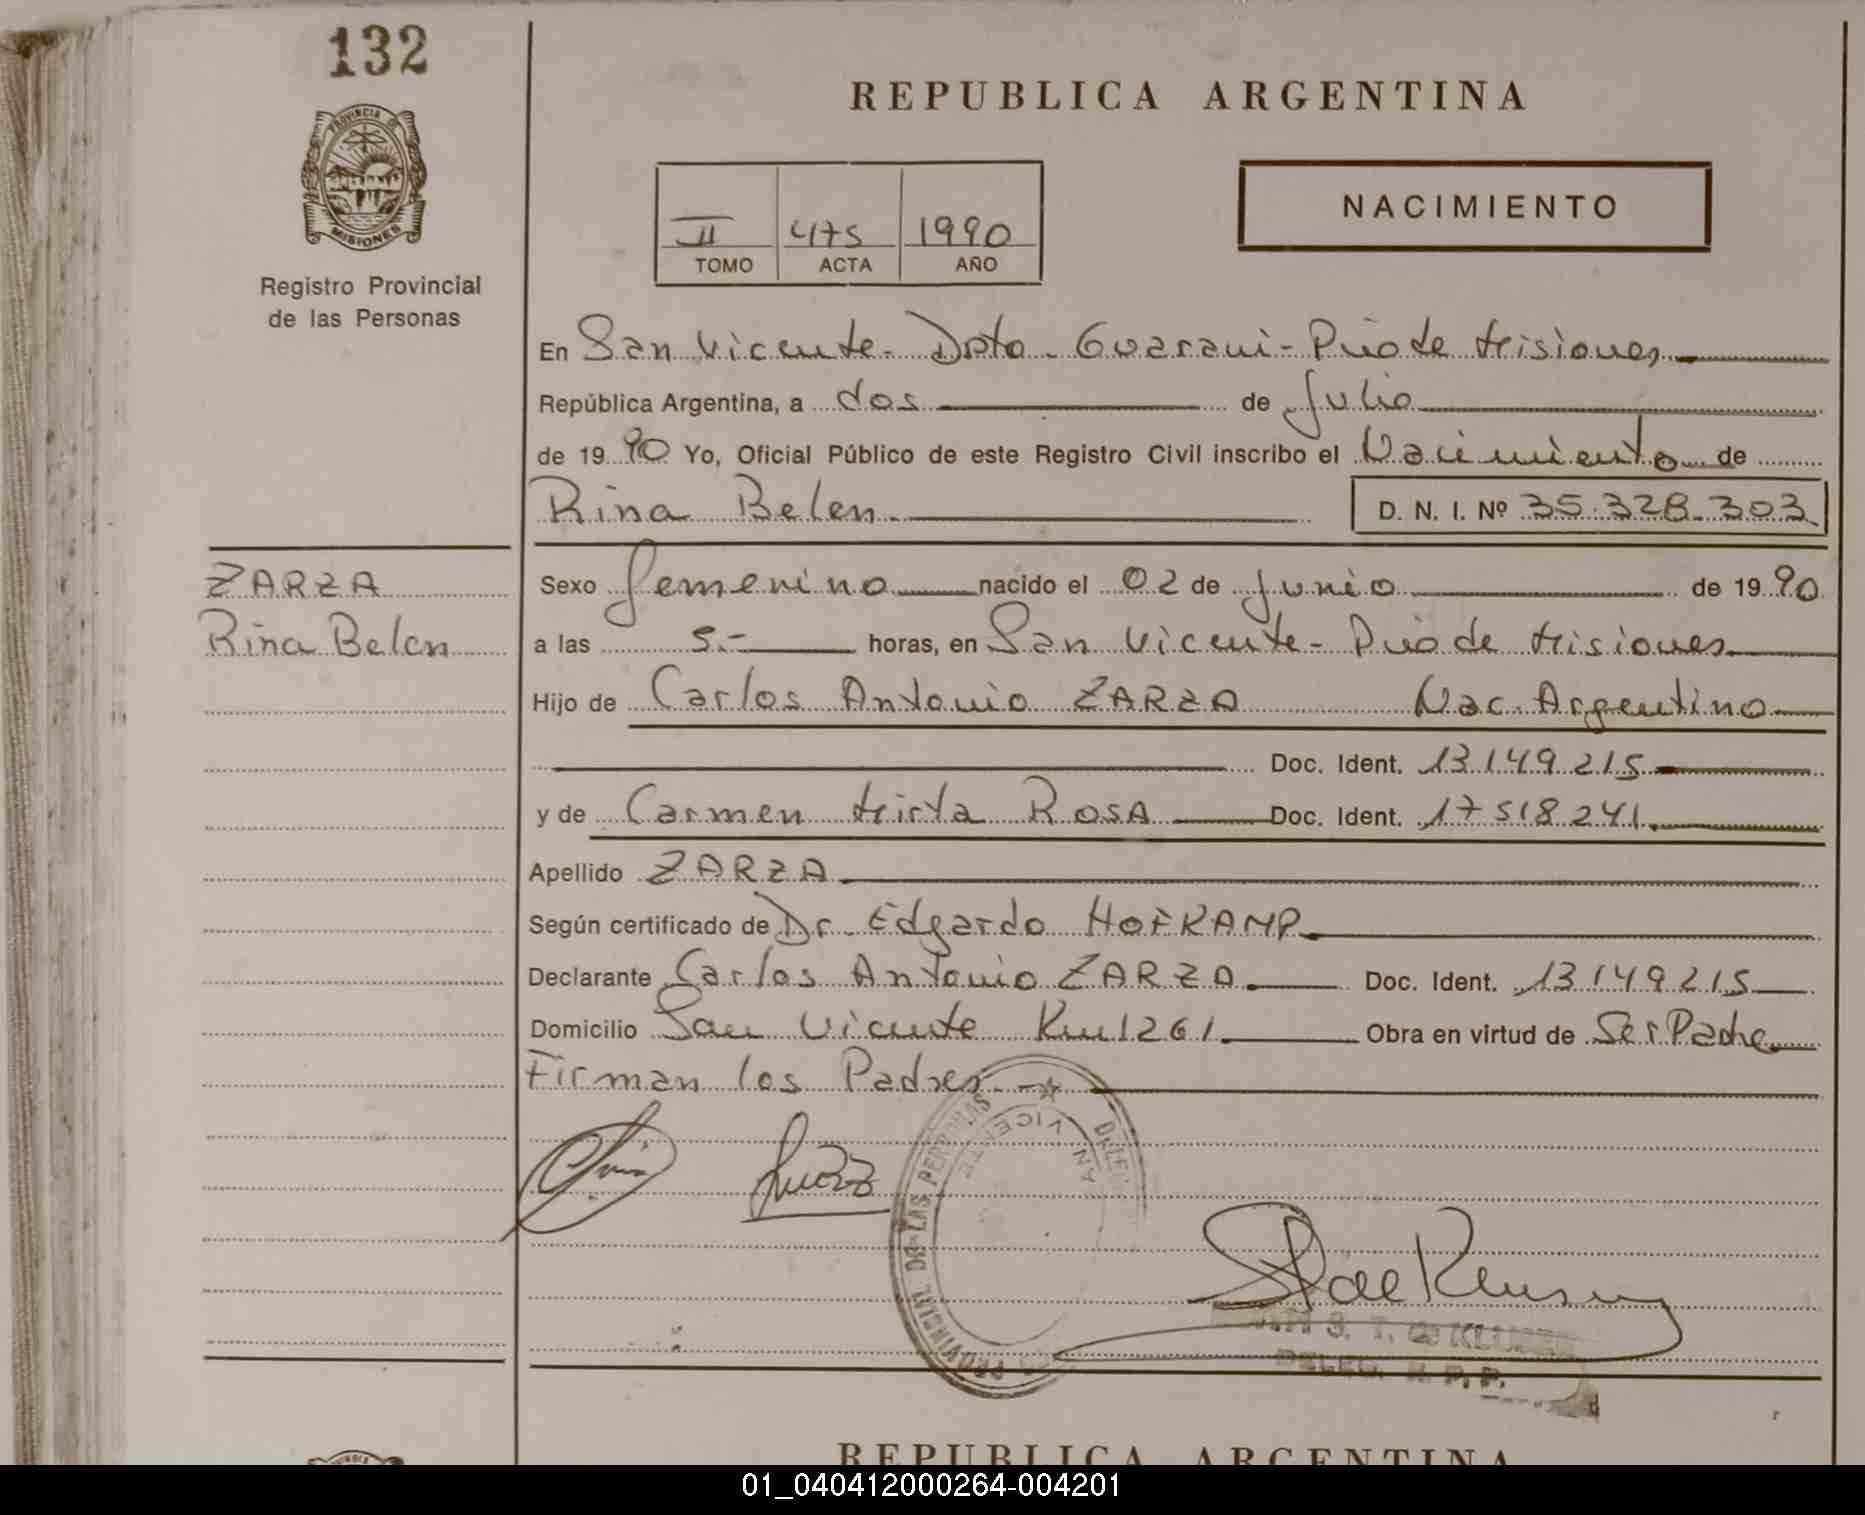 132
REPUBLICA ARGENTINA
PROVINCIA DE
MISIONES
Registro Provincial
de las Personas
II 475 1990
TOMO ACTA AÑO
NACIMIENTO
En San Vicente - Dpto. Guarani - Pcia de Misiones
República Argentina, a dos de Julio
de 1990 Yo, Oficial Público de este Registro Civil inscribo el Nacimiento de
Rina Belen D. N. I. Nº 35.328.303
ZARZA
Rina Belen
Sexo femenino nacido el 02 de junio de 1990
a las 5.- horas, en San Vicente - Pcia de Misiones
Hijo de Carlos Antonio ZARZA Nac. Argentino
Doc. Ident. 13149215
y de Carmen Mirta ROSA Doc. Ident. 17518241
Apellido ZARZA
Según certificado de Dr. Edgardo HOFKAMP
Declarante Carlos Antonio ZARZA Doc. Ident. 13149215
Domicilio San Vicente Km 1261 Obra en virtud de Ser Padre
Firman los Padres.
PROVINCIAL DE LAS PERSONAS
VICENTE
S. T. de
DELEG. R. P. P.
REPUBLICA ARGENTINA
01_040412000264-004201